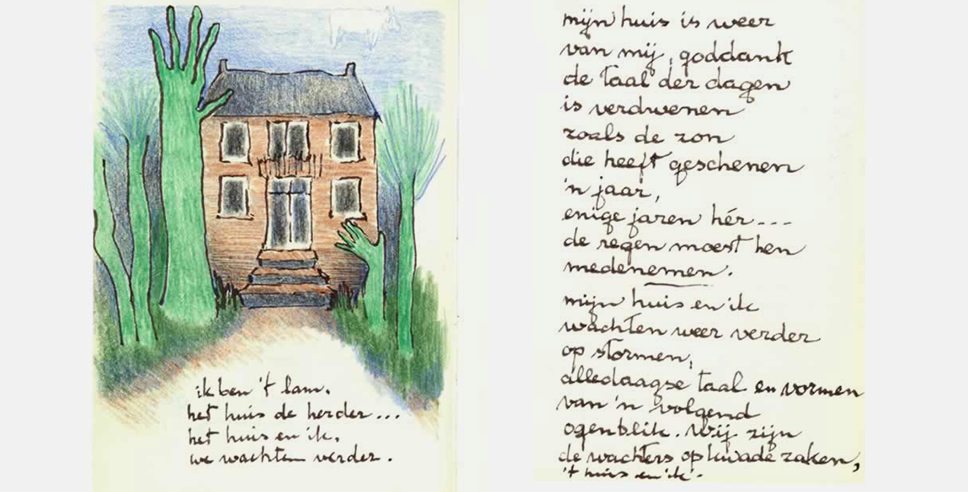 ik ben 't lam.
het huis de herder...
het huis en ik.
we wachten verder.
mijn huis is weer
van mij, goddank
de taal der dagen
is verdwenen
zoals de zon
die heeft geschenen
'n jaar,
enige jaren hér---
de regen moest hen
medenemen.
mijn huis en ik
wachten weer verder
op stormen,
alledaagse taal en vormen
van 'n volgend
ogenblik. Wij zijn
de wachters op kwade zaken,
't huis en ik.